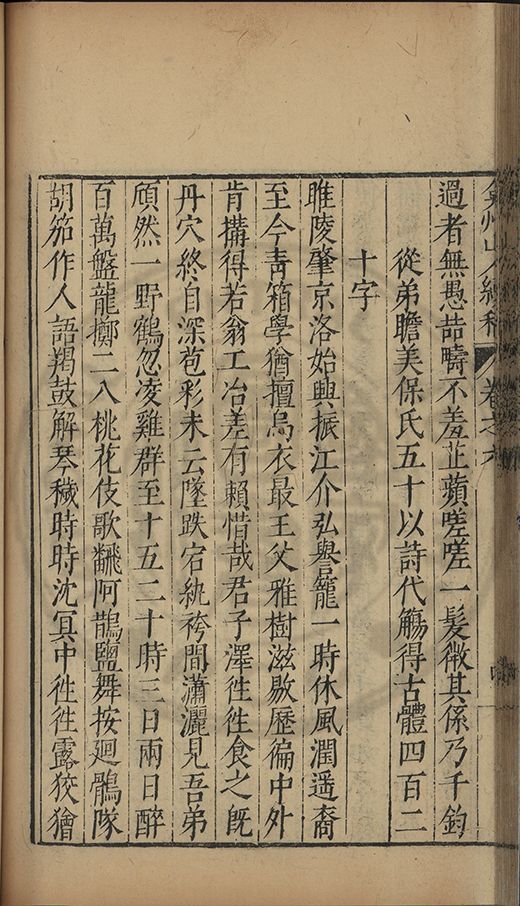 弇州山人續稿 卷之六
過者無愚喆疇不羞芷蘋嗟嗟一髮微其係乃千鈞
從弟瞻美保氏五十以詩代觴得古體四百二
十字
睢陵肇京洛始興振江介弘譽籠一時休風潤遥裔
至今青箱學猶擅烏衣最王父雅樹滋敭歷徧中外
肯搆得若翁工冶差有賴惜哉君子澤徃徃食之旣
丹穴終自深苞彩未云墜跌宕紈袴間瀟灑見吾弟
頎然一野鶴忽凌雞群至十五二十時三日兩日醉
百萬盤龍擲二八桃花伎歌翻阿鵲鹽舞按廻鶻隊
胡笳作人語羯鼓解琴穢時時沈冥中徃徃露狡獪